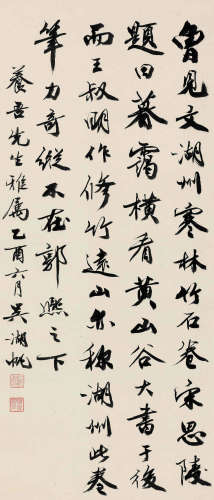 曾見文湖州寒林竹石卷宋思陵
題曰暮靄橫看黃山谷大書于後
而王叔明作修竹遠山亦称湖州此卷
筆力奇縱不在郭熙之下
養吾先生雅属乙酉六月吳湖帆